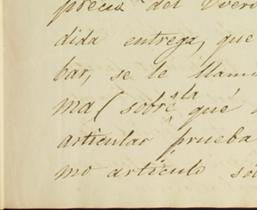 precia del
dida entrega, que
bar, se le llam
ma( sobre la qué
articular prueba
mo artículo so